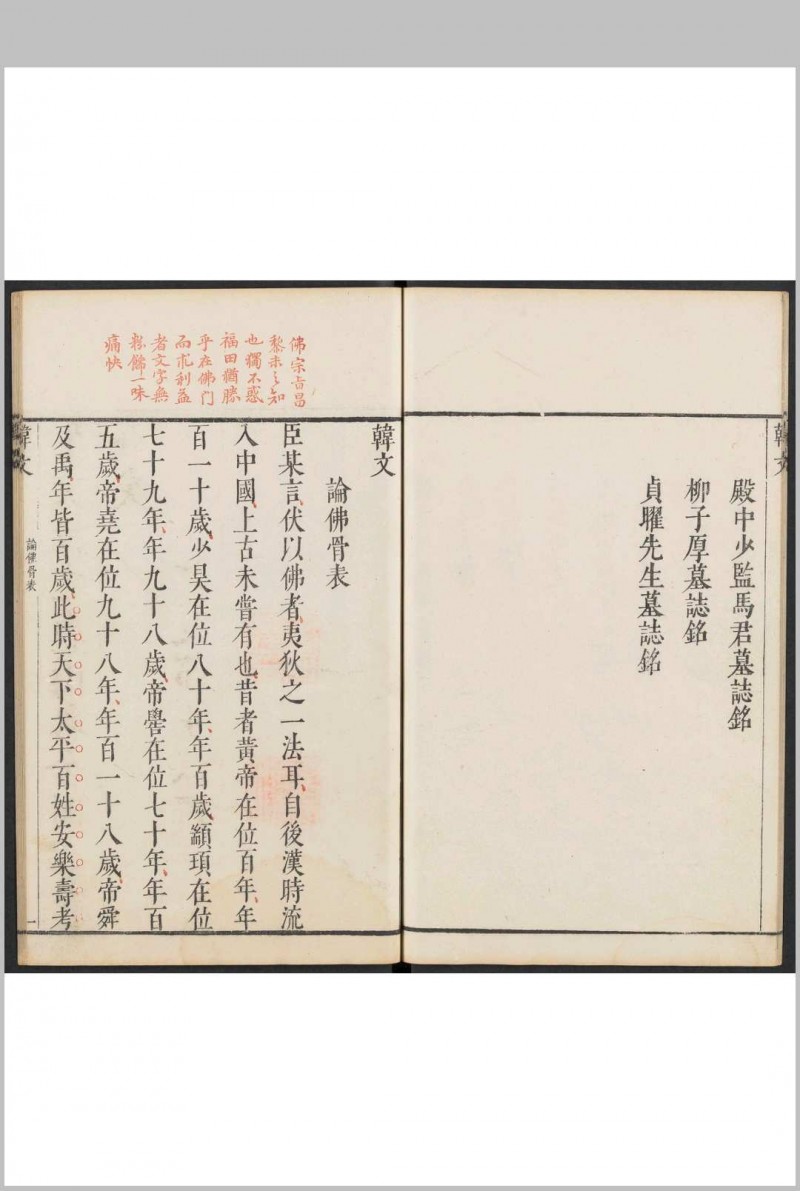 韓文
殿中少監馬君墓誌銘
柳子厚墓誌銘
貞曜先生墓誌銘
佛宗旨昌
黎未之知
也獨不惑
福田猶勝
乎在佛門
而求利益
者文字無
粉飾一味
痛快
韓文
論佛骨表
臣某言伏以佛者夷狄之一法耳自後漢時流
入中國上古未嘗有也昔者黃帝在位百年年
百一十歲少昊在位八十年年百歲顓頊在位
七十九年年九十八歲帝嚳在位七十年年百
五歲帝堯在位九十八年年百一十八歲帝舜
及禹年皆百歲此時天下太平百姓安樂壽考
韓文
論佛骨表
一